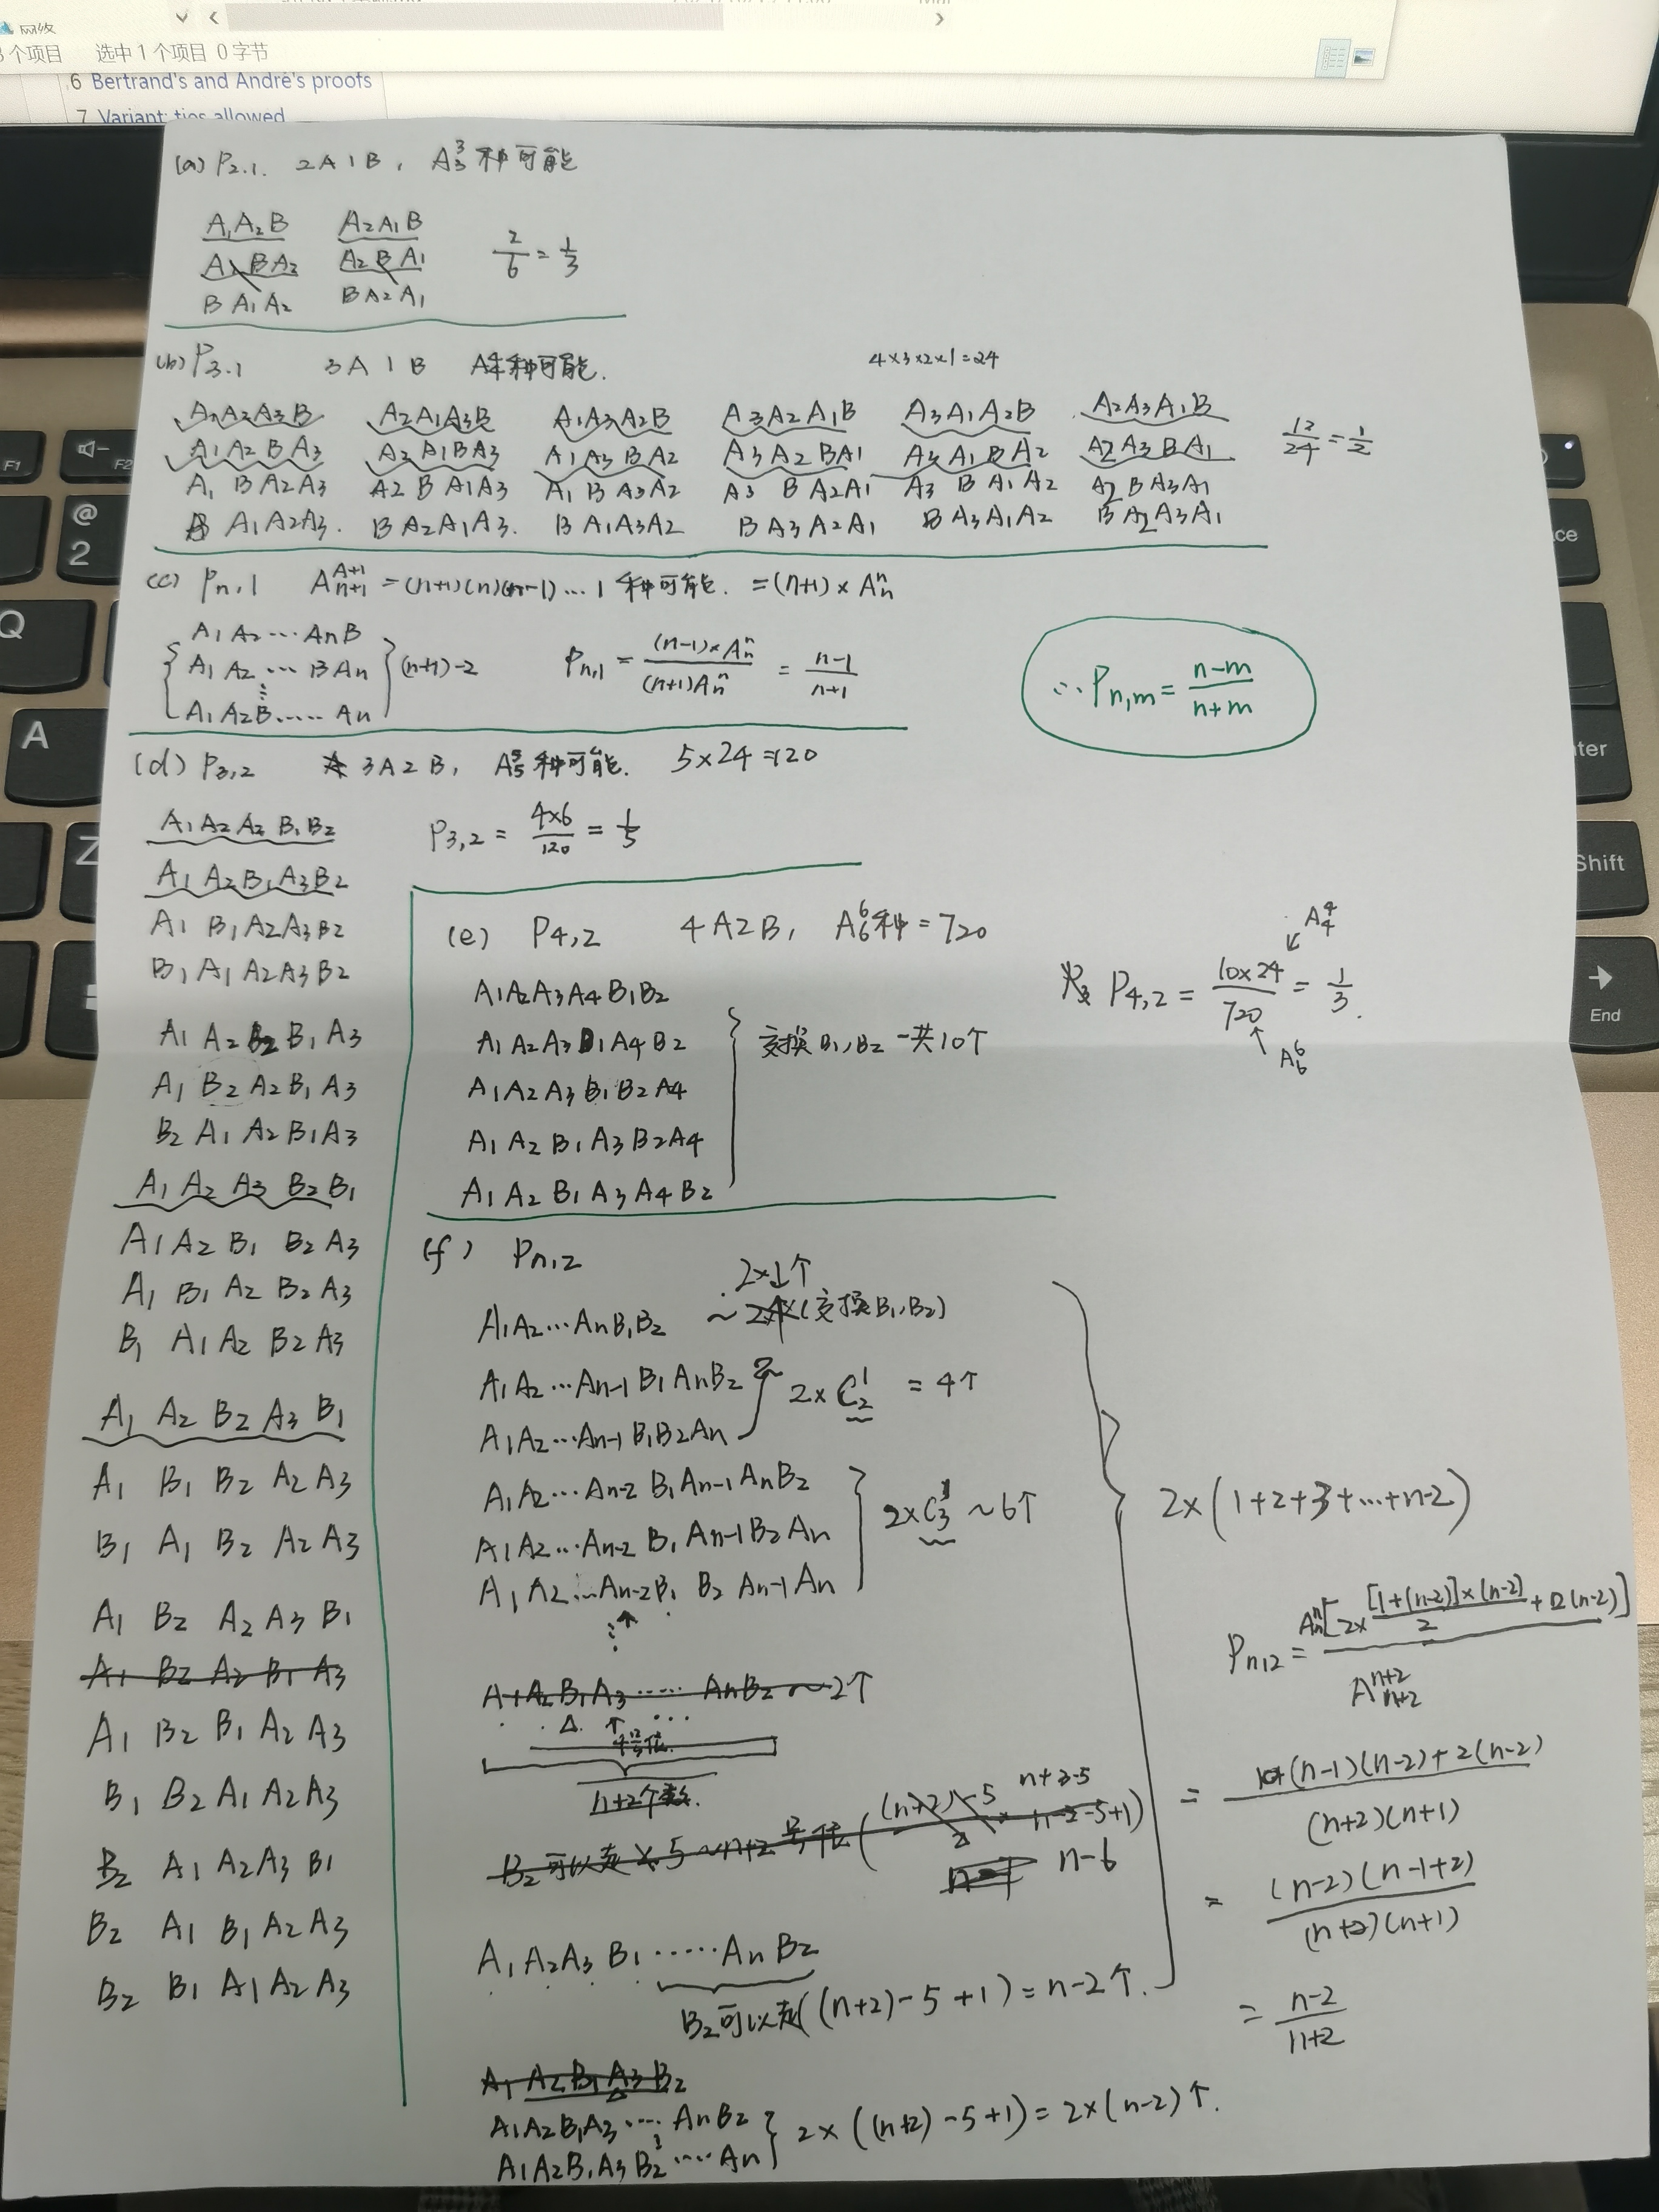 网络
个项目 选中 1 个项目 0 字节
6 Bertrand's and André's proofs
7 Variant: ties allowed
(a) P2.1. 2A1B, A₃³种可能
A₁A₂B A₂A₁B
A₁BA₂ A₂BA₁ 2/6 = 1/3
BA₁A₂ BA₂A₁
(b) P3.1 3A1B A⁴₄种可能. 4×3×2×1=24
A₁A₂A₃B A₂A₁A₃B A₁A₃A₂B A₃A₂A₁B A₃A₁A₂B A₂A₃A₁B
A₁A₂BA₃ A₂A₁BA₃ A₁A₃BA₂ A₃A₂BA₁ A₃A₁BA₂ A₂A₃BA₁ 12/24=1/2
A₁BA₂A₃ A₂BA₁A₃ A₁BA₃A₂ A₃BA₂A₁ A₃BA₁A₂ A₂BA₃A₁
BA₁A₂A₃. BA₂A₁A₃. BA₁A₃A₂ BA₃A₂A₁ BA₃A₁A₂ BA₂A₃A₁
(c) Pn,1 Aₙ₊₁^(A+1) = (n+1)(n)(n-1)...1 种可能. =(n+1)×Aₙⁿ
A₁A₂···AnB
A₁A₂···BAn (n+1)-2 Pn,1 = (n-1)×Aₙⁿ/(n+1)Aₙⁿ = n-1/n+1
A₁A₂B.....An
∴Pn,m = n-m/n+m
(d) P3,2 3A2B, A⁵₅种可能. 5×24=120
A₁A₂A₂B₁B₂
P3,2 = 4×6/120 = 1/5
A₁A₂B₁A₃B₂
A₁B₁A₂A₃B₂
B₁A₁A₂A₃B₂
A₁A₂B₂B₁A₃
A₁B₂A₂B₁A₃
B₂A₁A₂B₁A₃
A₁A₂A₃B₂B₁
A₁A₂B₁B₂A₃
A₁B₁A₂B₂A₃
B₁A₁A₂B₂A₃
A₁A₂B₂A₃B₁
A₁B₁B₂A₂A₃
B₁A₁B₂A₂A₃
A₁B₂A₂A₃B₁
A₁B₂A₂B₁A₃
A₁B₂B₁A₂A₃
B₁B₂A₁A₂A₃
B₂A₁A₂A₃B₁
B₂A₁B₁A₂A₃
B₂B₁A₁A₂A₃
(e) P4,2 4A2B, A₆⁶种=720
A₁A₂A₃A₄B₁B₂
A₁A₂A₃B₁A₄B₂
A₁A₂A₃B₁B₂A₄
A₁A₂B₁A₃B₂A₄
A₁A₂B₁A₃A₄B₂
交换B₁,B₂一共10个
A₄⁴
P4,2 = 10×24/720 = 1/3.
A₆⁶
(f) Pn,2
2×1个
A₁A₂···AnB₁B₂ ~ (交换B₁,B₂)
A₁A₂···An-1B₁AnB₂
2×C₂¹ = 4个
A₁A₂···An-1B₁B₂An
A₁A₂···An-2B₁An-1AnB₂
A₁A₂···An-2B₁An-1B₂An 2×C₃¹ ~6个
A₁A₂...An-2B₁B₂An-1An
A₁A₂B₁A₃······AnB₂~2个
n+2个
B₂可以走 5~n+2号位 ((n+2)-5 n+2-5
n-6
A₁A₂A₃B₁······AnB₂
B₂可以走((n+2)-5+1)=n-2个.
A₁A₂B₁A₃B₂
A₁A₂B₁A₃····AnB₂
A₁A₂B₁A₃B₂····An
2×((n+2)-5+1)=2×(n-2)个.
2×(1+2+3+···+n-2)
Pn,2 = Aₙⁿ[2×[1+(n-2)]×(n-2)/2+2(n-2)]/Aₙ₊₂ⁿ⁺²
= (n-1)(n-2)+2(n-2)/(n+2)(n+1)
= (n-2)(n-1+2)/(n+2)(n+1)
= n-2/n+2
F1
F2
@
2
Q
A
Z
Shift
End